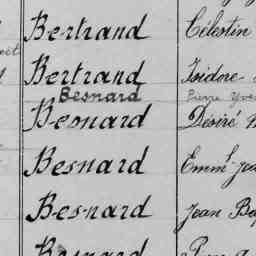 Bertrand Célestin
Bertrand Isidore
Besnard Pierre Yves
Besnard Désiré
Besnard Emml
Besnard Jean
Besnard